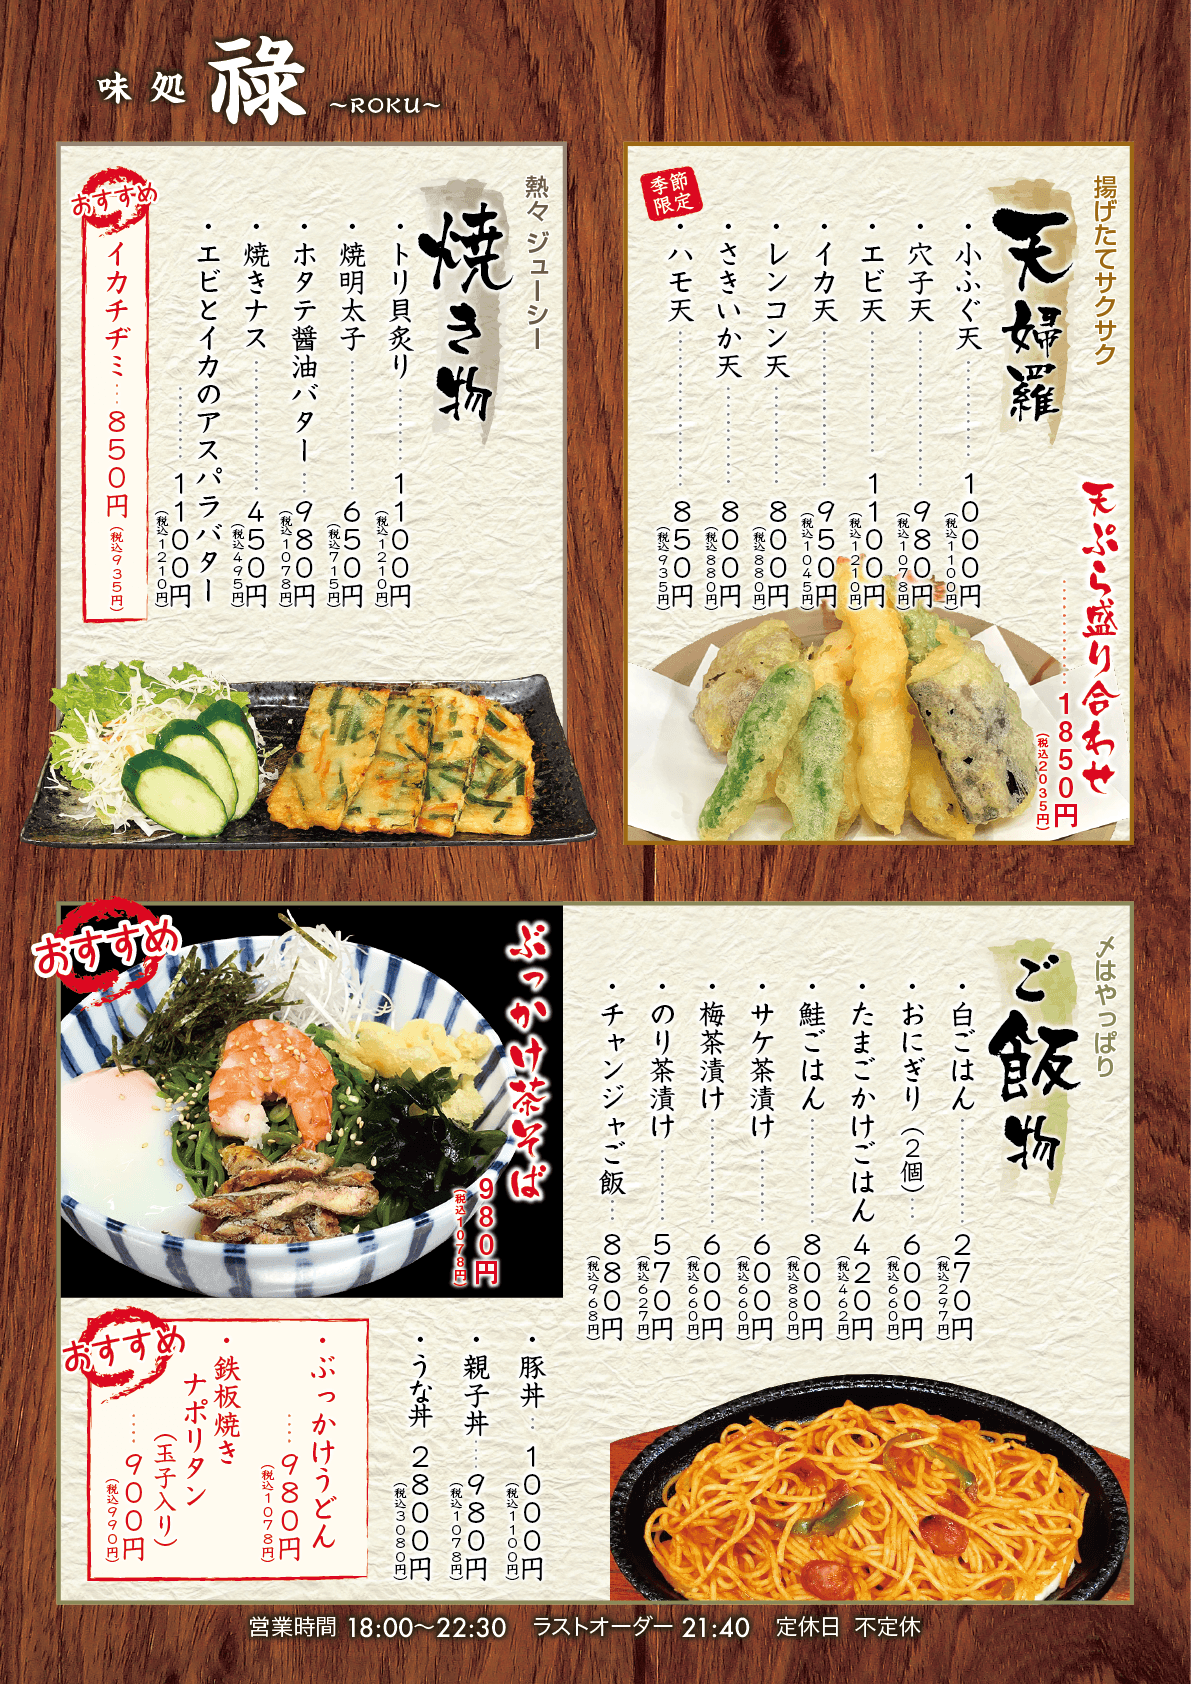 味処 祿 ～ROKU～
揚げたてサクサク
天婦羅
天ぷら盛り合わせ
1850円
(税込2035円)
・小ふぐ天 1000円
(税込1100円)
・穴子天 980円
(税込1078円)
・エビ天 1100円
(税込1210円)
・イカ天 950円
(税込1045円)
・レンコン天 800円
(税込880円)
・さきいか天 800円
(税込880円)
季節
限定
・ハモ天 850円
(税込935円)
熱々 ジューシー
焼き物
・トリ貝炙り 1100円
(税込1210円)
・焼明太子 650円
(税込715円)
・ホタテ醤油バター 980円
(税込1078円)
・焼きナス 450円
(税込495円)
・エビとイカのアスパラバター
1100円
(税込1210円)
おすすめ
イカチヂミ 850円
(税込935円)
〆はやっぱり
ご飯物
・白ごはん 270円
(税込297円)
・おにぎり(2個) 600円
(税込660円)
・たまごかけごはん 420円
(税込462円)
・鮭ごはん 800円
(税込880円)
・サケ茶漬け 600円
(税込660円)
・梅茶漬け 600円
(税込660円)
・のり茶漬け 570円
(税込627円)
・チャンジャご飯 880円
(税込968円)
おすすめ
ぶっかけ茶そば
980円
(税込1078円)
・豚丼 1000円
(税込1100円)
・親子丼 980円
(税込1078円)
・うな丼 2800円
(税込3080円)
おすすめ
・ぶっかけうどん
980円
(税込1078円)
・鉄板焼き
ナポリタン
(玉子入り)
900円
(税込990円)
営業時間 18:00～22:30 ラストオーダー 21:40 定休日 不定休